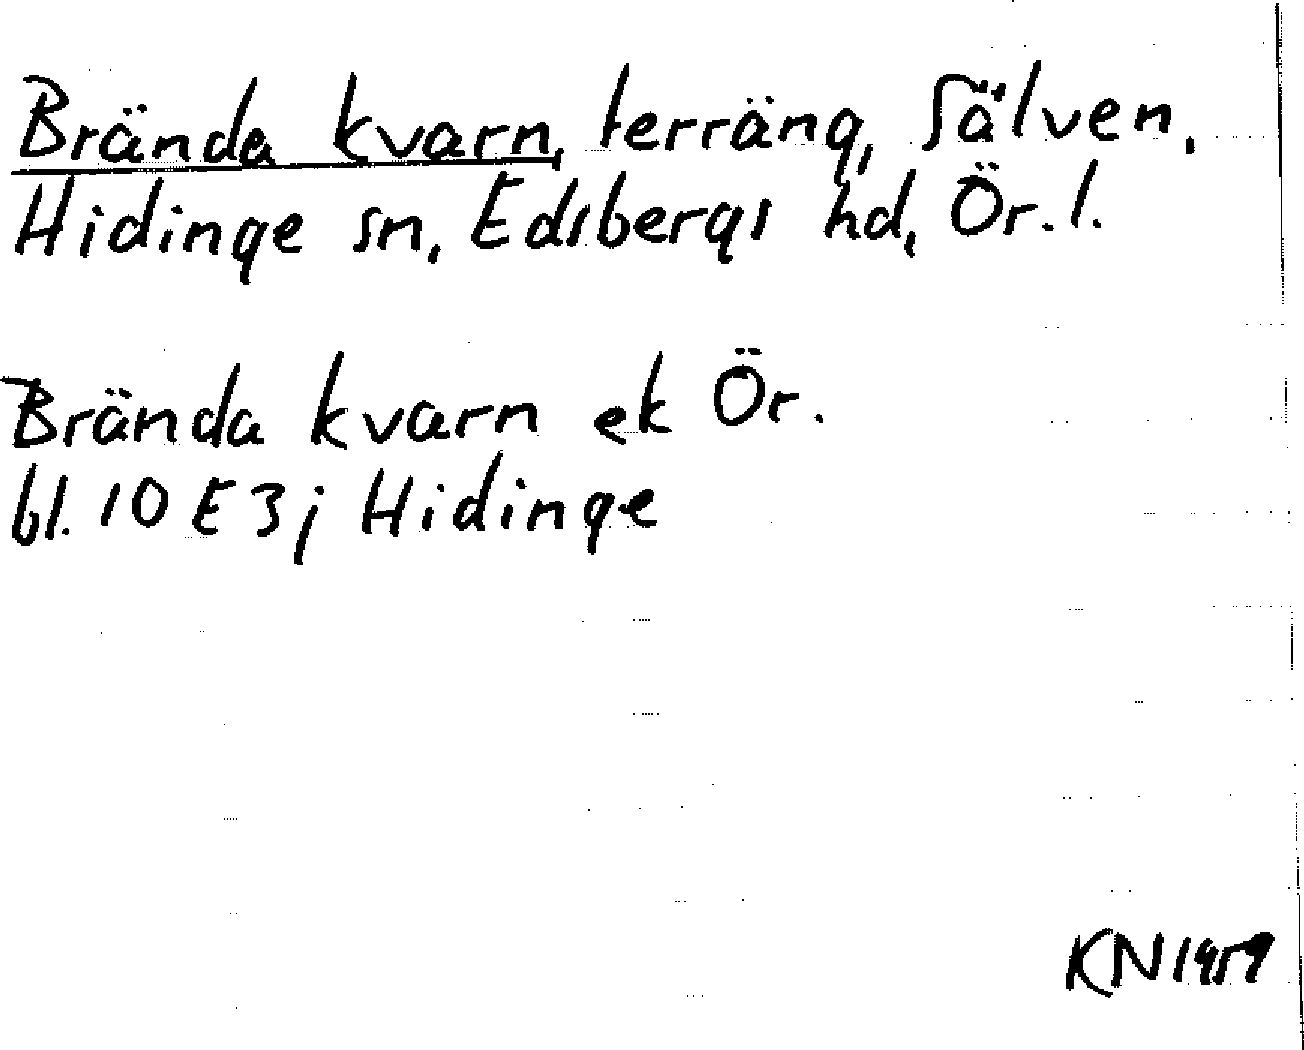 Brända kvarn, terräng, Sälven,
Hidinge sn, Edsbergs hd, Ör. l.
Brända kvarn ek Ör.
bl. 10 E 3j Hidinge
KN 1959